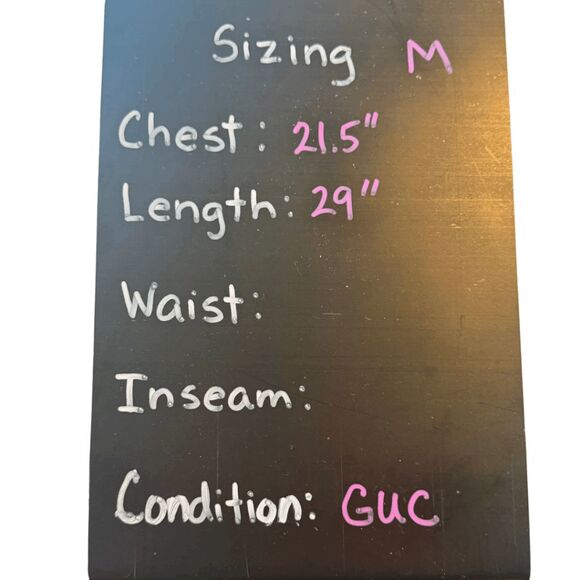 Sizing M
Chest: 21.5"
Length: 29"
Waist:
Inseam:
Condition: GUC